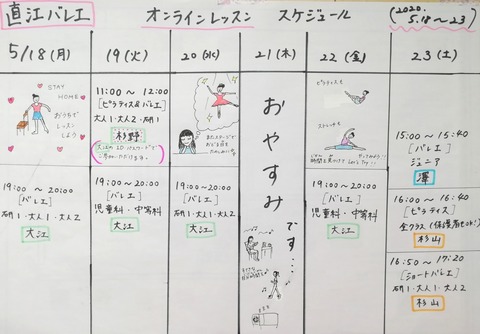 直江バレエ
オンラインレッスン スケジュール
(2020.
5.18〜23)
5/18(月)
19(火)
20(水)
21(木)
22(金)
23(土)
STAY
HOME
おうちで
レッスン
しよう
19:00 〜 20:00
[バレエ]
研1・大人1・大人2
大江
11:00 〜 12:00
[ピラティス&バレエ]
大人1・大人2・研1
杉野
19:00〜20:00
[バレエ]
児童科・中等科
大江
19:00〜20:00
[バレエ]
研1・大人1・大人2
大江
おやすみ
です…
ピラティスも
ストレッチも
19:00〜20:00
[バレエ]
児童科・中等科
大江
15:00 〜 15:40
[バレエ]
ジュニア
澤
16:00 〜 16:40
[ピラティス]
全クラス(保護者もOK!)
杉山
16:50 〜 17:20
[ショートバレエ]
研1・大人1・大人2
杉山